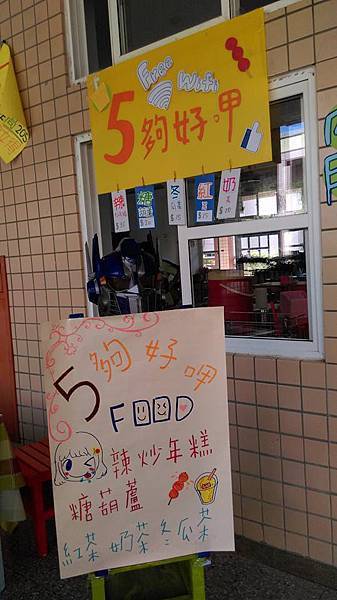 Free
WiFi
5夠好呷
辣
糖
冬
紅
奶
$15
$15
$20
5夠好呷
FOOD
辣炒年糕
糖葫蘆
紅茶 奶茶 冬瓜茶